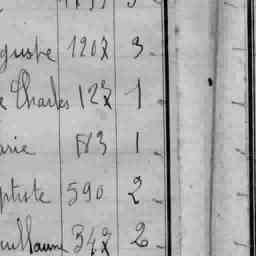 guste 1207 3
e Charles 127 1
arie 813 1
ptiste 590 2
uillaume 347 2